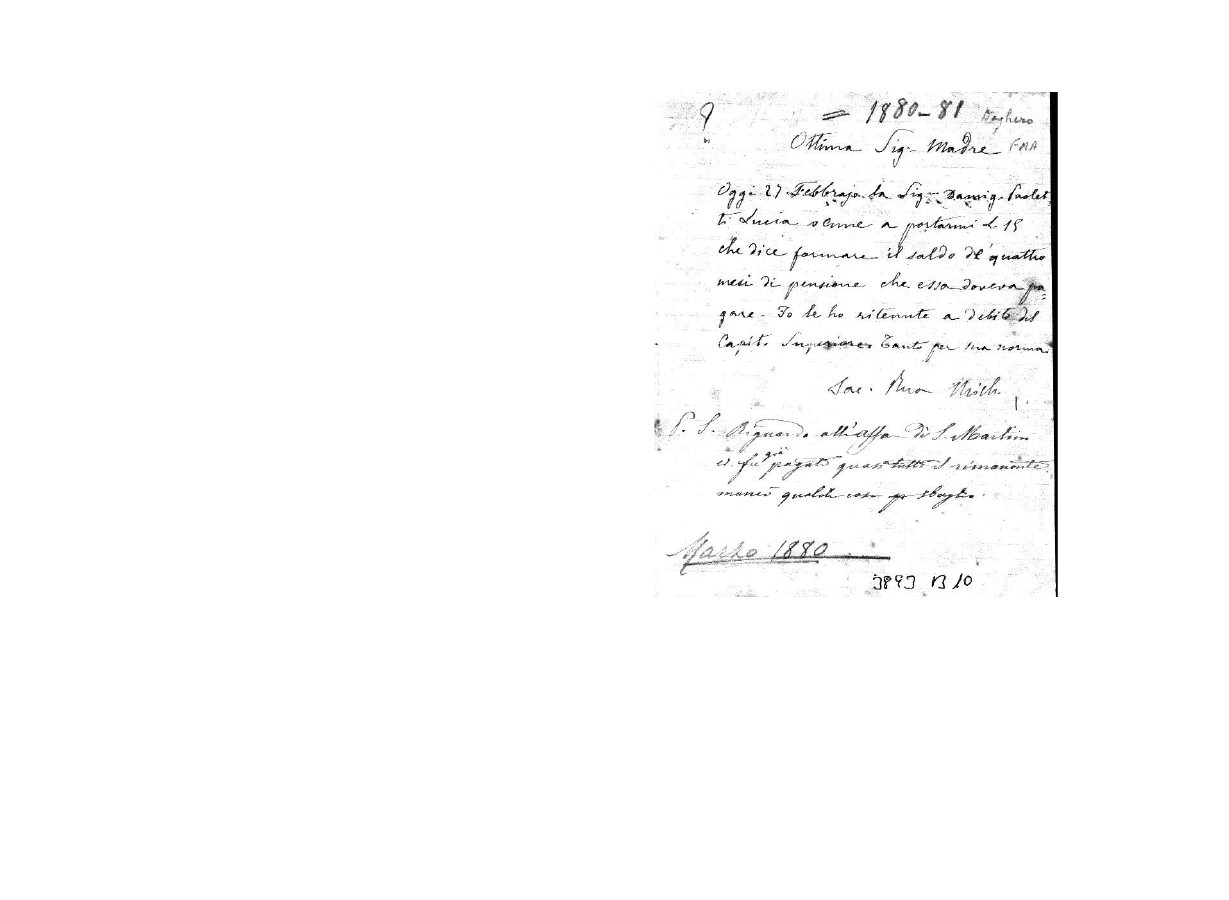 ? = 1880-81 Daghero
Ottima Sig. Madre FMA
Oggi 27 Febbrajo la Sig.ra Damig. Paolet
ti Lucia venne a portarmi L 15
che dice formare il saldo de' quattro
mesi di pensione che essa doveva pa=
gare. Io le ho ritenute a debito del
Capit. Superiore. Tanto per sua norma.
Sac. Rua Mich.
P. S. Riguardo all'affa di S. Martino
ci fu già pagato quasi tutto il rimanente
mancò qualche cosa per sbaglio.
Marzo 1880
3893 B 10